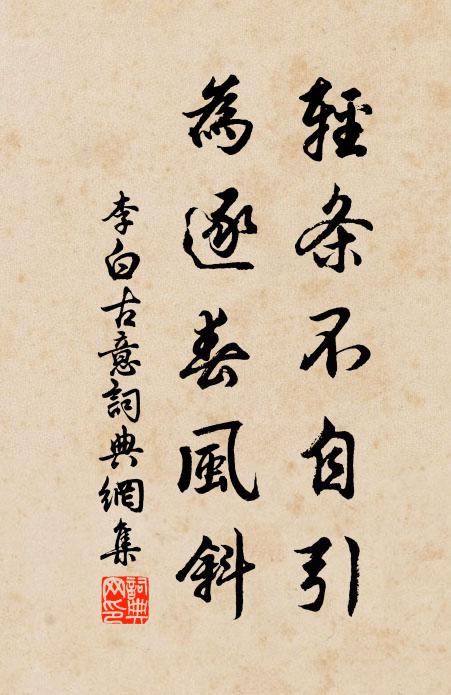 輕条不自引
為逐春風斜
李白古意詞典網集
詞典網印